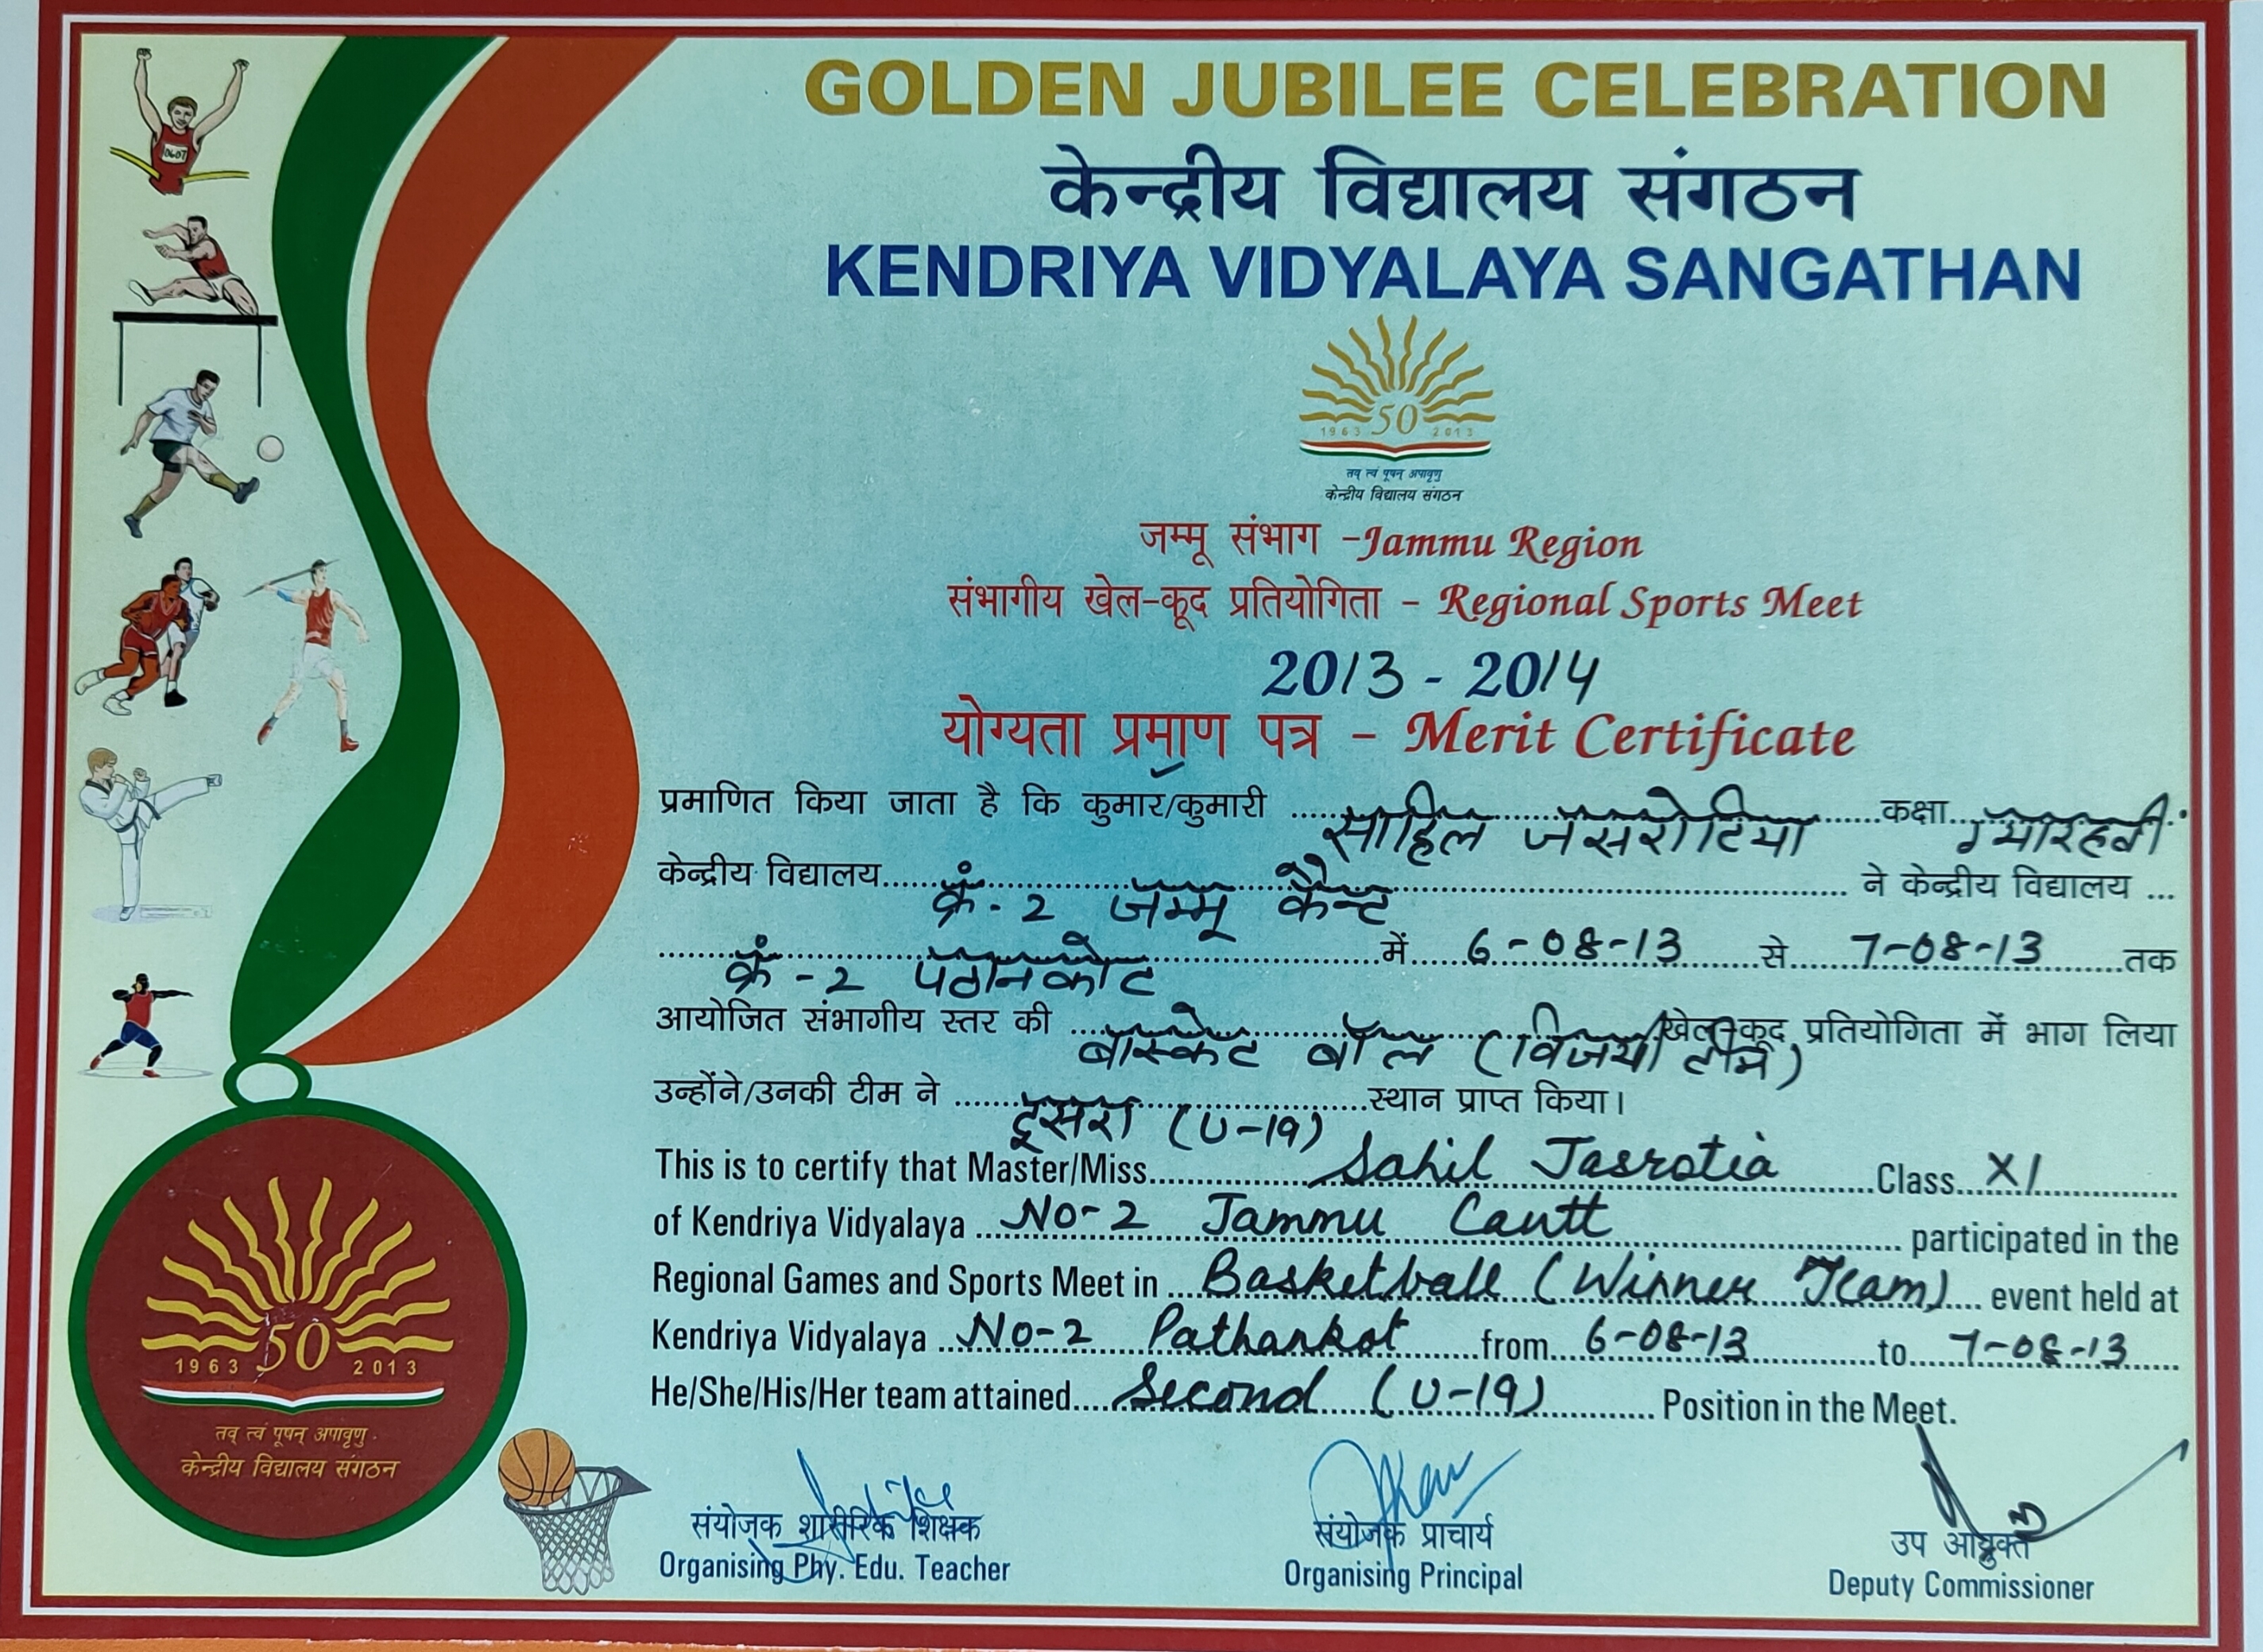 GOLDEN JUBILEE CELEBRATION
केन्द्रीय विद्यालय संगठन
KENDRIYA VIDYALAYA SANGATHAN
1963 50 2013
तत् त्वं पूषन् अपावृणु
केन्द्रीय विद्यालय संगठन
जम्मू संभाग -Jammu Region
संभागीय खेल-कूद प्रतियोगिता - Regional Sports Meet
2013 - 2014
योग्यता प्रमाण पत्र - Merit Certificate
प्रमाणित किया जाता है कि कुमार/कुमारी साहिल जसरोटिया कक्षा ग्यारहवीं
केन्द्रीय विद्यालय क्रं-2 जम्मू कैन्ट ने केन्द्रीय विद्यालय
क्रं-2 पठानकोट में 6-08-13 से 7-08-13 तक
आयोजित संभागीय स्तर की बास्केट बॉल (विजयी टीम) खेल-कूद प्रतियोगिता में भाग लिया
उन्होंने/उनकी टीम ने दूसरा (U-19) स्थान प्राप्त किया।
This is to certify that Master/Miss Sahil Jasrotia Class XI
of Kendriya Vidyalaya No-2 Jammu Cantt participated in the
Regional Games and Sports Meet in Basketball (Winner Team) event held at
Kendriya Vidyalaya No-2 Pathankot from 6-08-13 to 7-08-13
He/She/His/Her team attained Second (U-19) Position in the Meet.
0607
1963 50 2013
तत् त्वं पूषन् अपावृणु
केन्द्रीय विद्यालय संगठन
संयोजक शारीरिक शिक्षक
Organising Phy. Edu. Teacher
संयोजक प्राचार्य
Organising Principal
उप आयुक्त
Deputy Commissioner